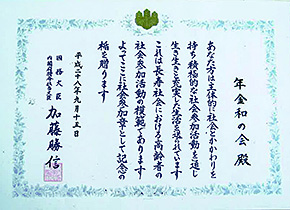 年金和の会 殿
あなた方は主体的に社会とかかわりを
持ち積極的な社会参加活動を通じ
生き生きと充実した生活を送られています
これは長寿社会における高齢者の
社会参加活動の模範であります
よってここに社会参加章として記念の
楯を贈ります
平成二十八年九月十五日
国務大臣
加藤勝信